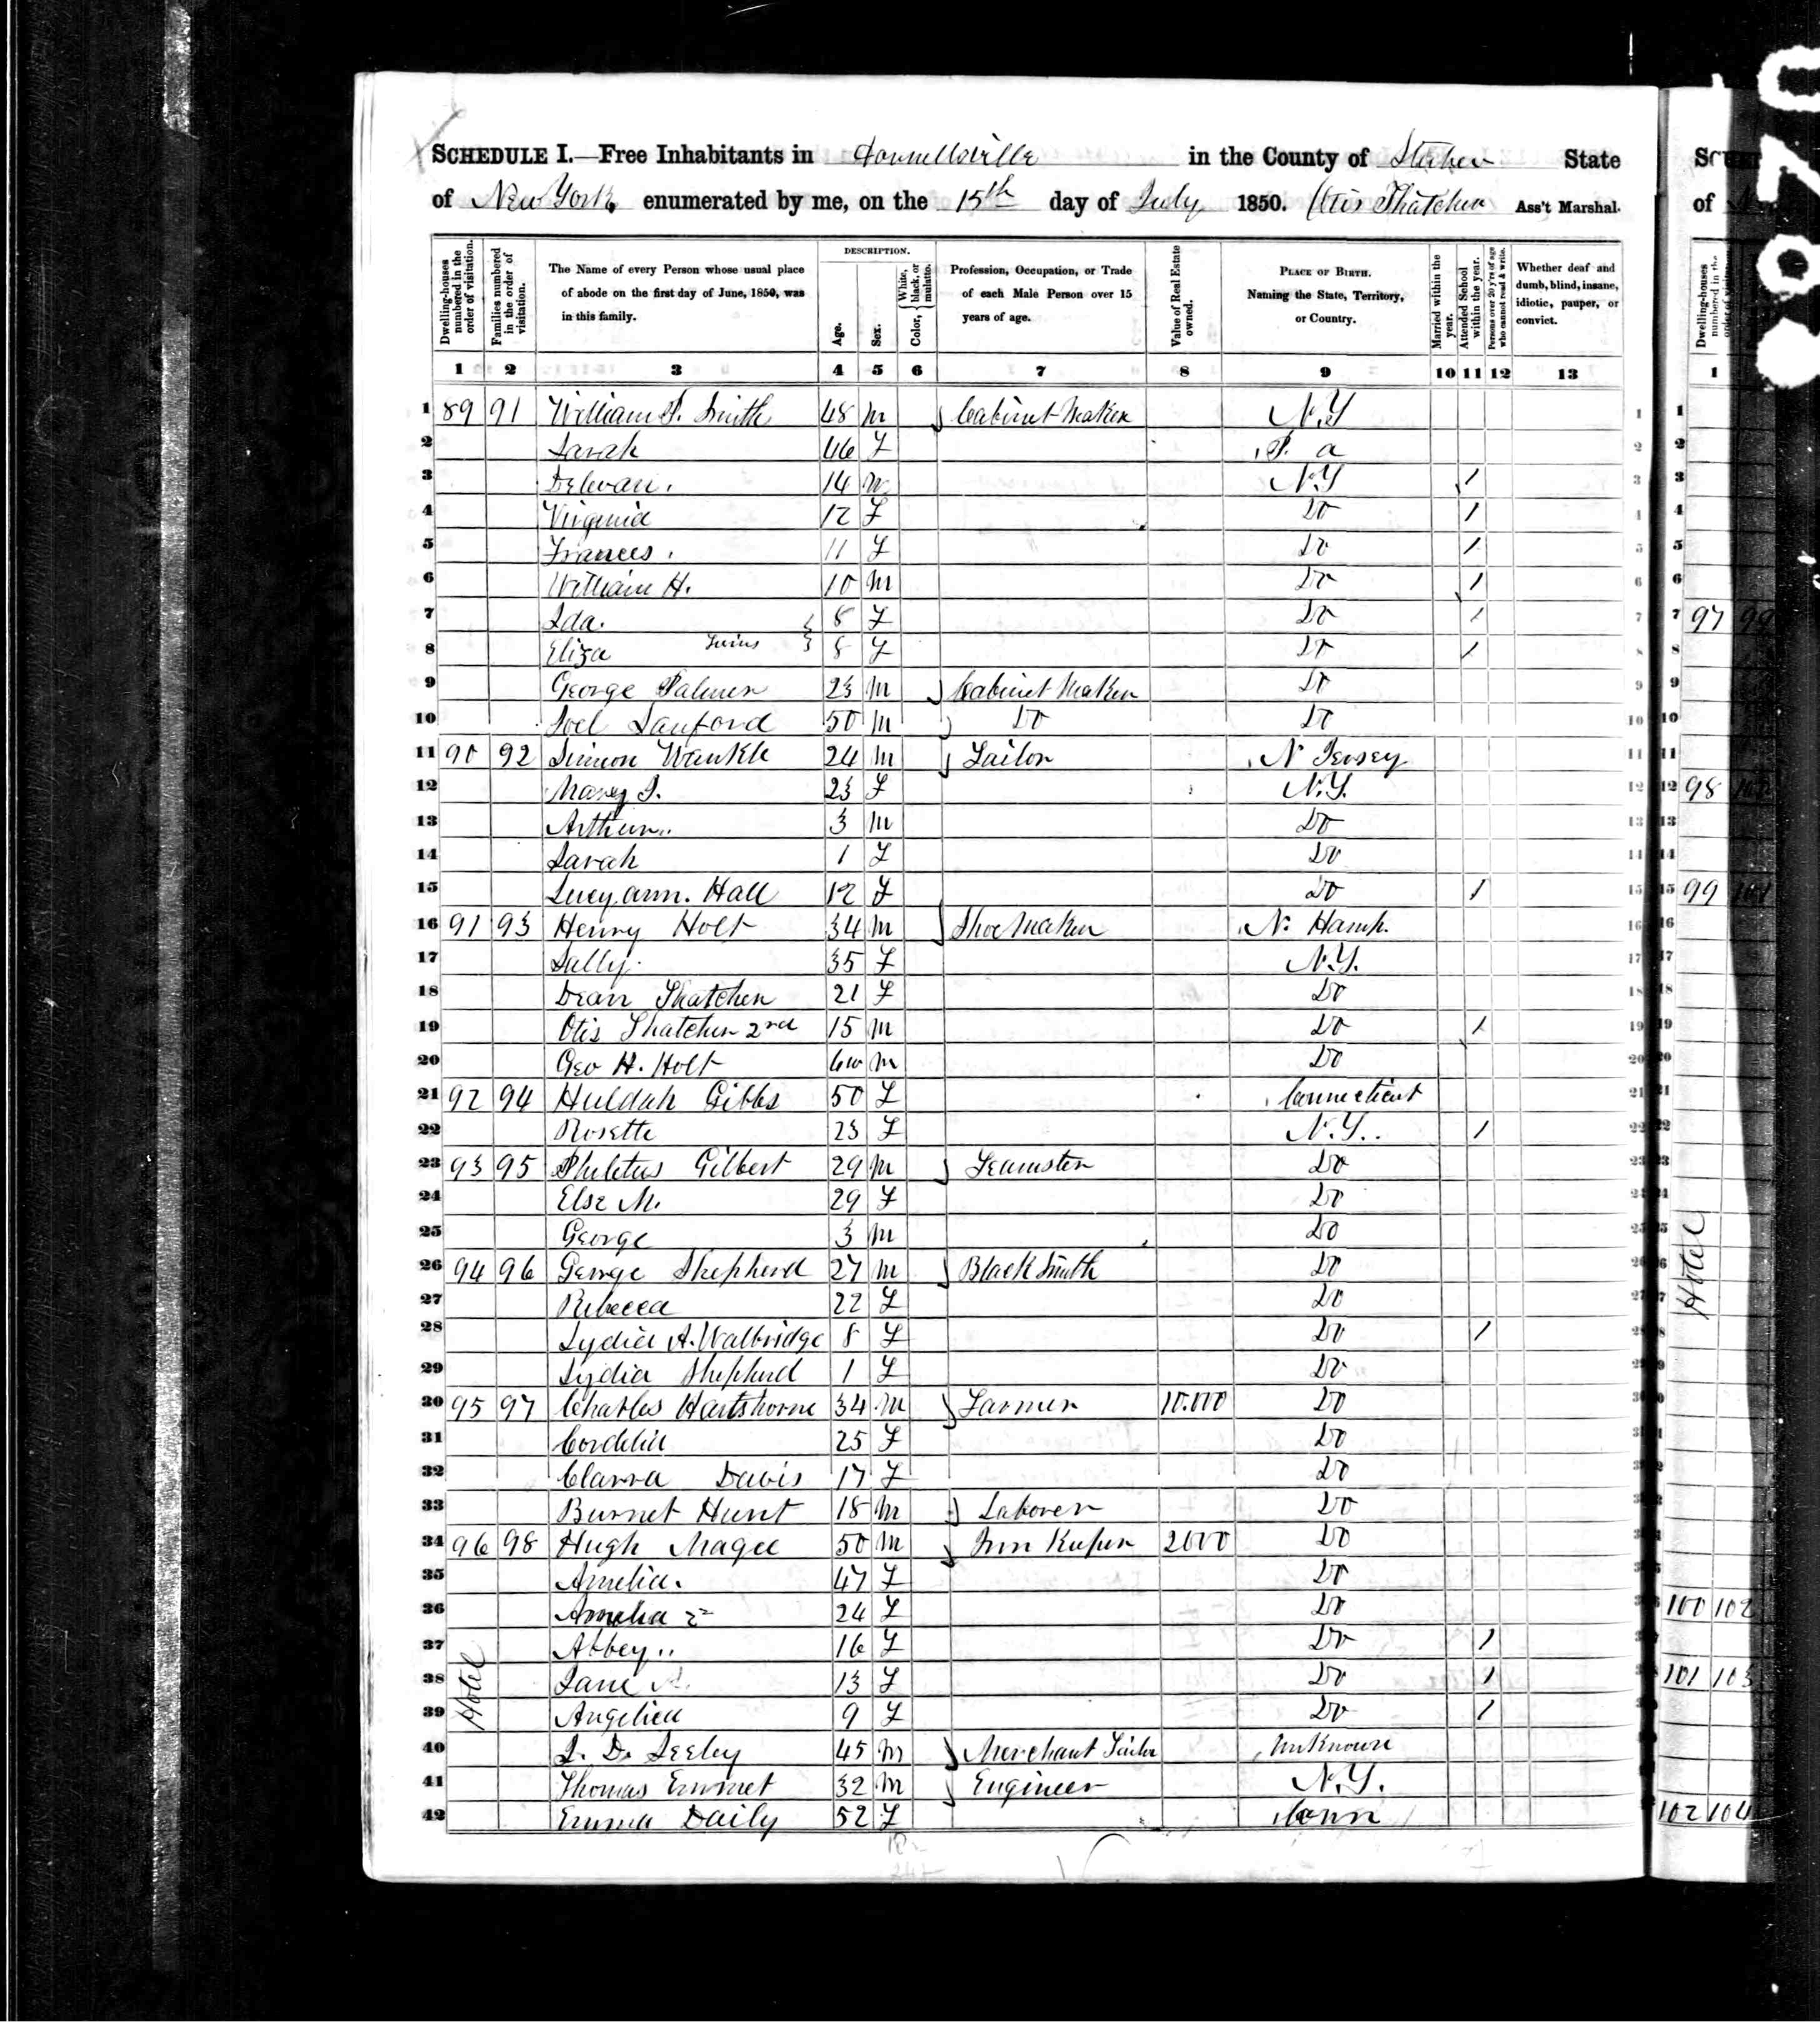 SCHEDULE I.—Free Inhabitants in Hornellsville in the County of Steuben State
of New York enumerated by me, on the 15th day of July 1850. Otis Thatcher Ass't Marshal.
Dwelling-houses numbered in the order of visitation.
Families numbered in the order of visitation.
The Name of every Person whose usual place of abode on the first day of June, 1850, was in this family.
DESCRIPTION.
Age.
Sex.
Color, White, black, or mulatto.
Profession, Occupation, or Trade of each Male Person over 15 years of age.
Value of Real Estate owned.
PLACE OF BIRTH. Naming the State, Territory, or Country.
Married within the year.
Attended School within the year.
Persons over 20 y'rs of age who cannot read & write.
Whether deaf and dumb, blind, insane, idiotic, pauper, or convict.
1 2 3 4 5 6 7 8 9 10 11 12 13
1 89 91 William Smith 48 m Cabinet Maker N.Y
2 Sarah 46 F P. a
3 Delevan. 14 m N.Y /
4 Virginia 12 F Do /
5 Frances. 11 F Do /
6 William H. 10 m Do /
7 Ida. 8 F Do /
8 Eliza Twins 8 F Do /
9 George Palmer 23 m Cabinet Maker Do
10 Joel Sanford 50 m Do Do
11 90 92 Simon Wankle 24 m Tailor N Jersey
12 Mary J. 23 F N.Y.
13 Arthur.. 3 m Do
14 Sarah 1 F Do
15 Lucy ann. Hall 12 F Do /
16 91 93 Henry Holt 34 m Shoe Maker N. Hamp.
17 Sally. 35 F N.Y.
18 Dean Thatcher 21 F Do
19 Otis Thatcher 2nd 15 m Do /
20 Geo H. Holt m Do
21 92 94 Huldah Gibbs 50 F Connecticut
22 Rosette 23 F N.Y.. /
23 93 95 Philetus Gilbert 29 m Teamster Do
24 Else M. 29 F Do
25 George 3 m Do
26 94 96 George Shepherd 27 m Black Smith Do
27 Rebecca 22 F Do
28 Lydia A. Walbridge 8 F Do /
29 Lydia Shepherd 1 F Do
20 95 97 Charles Hartshorne 34 m Farmer 10.000 Do
31 Cordelia 25 F Do
32 Clarra Davis 17 F Do
33 Burnet Hunt 18 m Laborer Do
34 96 98 Hugh Magee 50 m Inn Keeper 2000 Do
35 Amelia. 47 F Do
36 Amelia 2 24 F Do
37 Abbey.. 16 F Do /
38 Hotel Jane A. 13 F Do /
39 Angelica 9 F Do /
40 Seeley 45 m Merchant Tailor Unknown
41 Thomas Emmet 32 m Engineer N.Y.
42 Emma Daily 52 F Conn
of
Dwelling-houses
1
97 99
98
99
Hotel
100 102
101 103
102 104